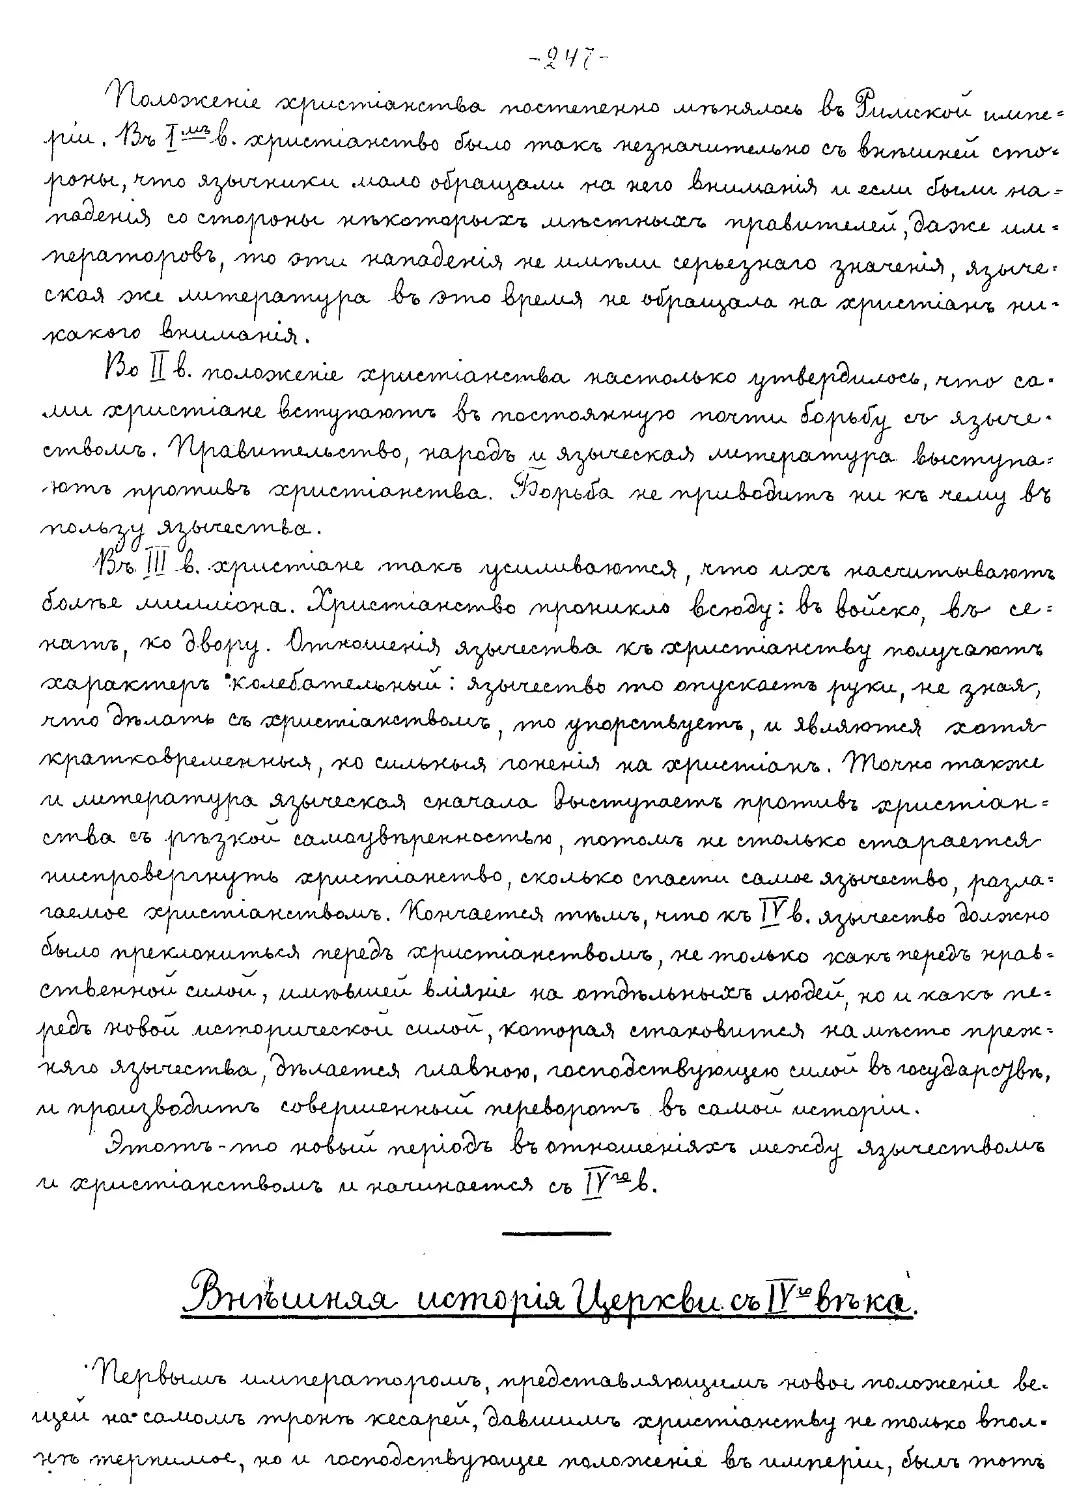 -247-
Положеніе христіанства постепенно мѣнялось въ Римской импе=
ріи. Въ I-мъ в. христіанство было такъ незначительно съ внѣшней сто=
роны, что язычники мало обращали на него вниманія и если были на=
паденія со стороны нѣкоторыхъ мѣстныхъ правителей, даже им=
ператоровъ, то эти нападенія не имѣли серьезнаго значенія, языче=
ская же литература въ это время не обращала на христіанъ ни=
какого вниманія.
Во II в. положеніе христіанства настолько утвердилось, что са=
ми христіане вступаютъ въ постоянную почти борьбу съ языче=
ствомъ. Правительство, народъ и языческая литература выступа=
ютъ противъ христіанства. Борьба не приводитъ ни къ чему въ
пользу язычества.
Въ III в. христіане такъ усиливаются, что ихъ насчитываютъ
болѣе милліона. Христіанство проникло всюду: въ войско, въ се=
натъ, ко двору. Отношенія язычества къ христіанству получаютъ
характеръ колебательный: язычество то опускаетъ руки, не зная,
что дѣлать съ христіанствомъ, то упорствуетъ, и являются хотя
кратковременныя, но сильныя гоненія на христіанъ. Точно также
и литература языческая сначала выступаетъ противъ христіан=
ства съ рѣзкой самоувѣренностью, потомъ не столько старается
ниспровергнуть христіанство, сколько спасти самое язычество, разла=
гаемое христіанствомъ. Кончается тѣмъ, что къ IV в. язычество должно
было преклониться передъ христіанствомъ, не только какъ передъ нрав=
ственной силой, имѣвшей вліяніе на отдѣльныхъ людей, но и какъ пе=
редъ новой исторической силой, которая становится на мѣсто преж=
няго язычества, дѣлается главною, господствующею силой въ государствѣ,
и производитъ совершенный переворотъ въ самой исторіи.
Этотъ-то новый періодъ въ отношеніяхъ между язычествомъ
и христіанствомъ и начинается съ IV-го в.
Внѣшняя исторія Церкви съ IV-го вѣка.
Первымъ императоромъ, представляющимъ новое положеніе ве=
щей на самомъ тронѣ кесарей, давшимъ христіанству не только впол=
нѣ терпимое, но и господствующее положеніе въ имперіи, былъ тотъ